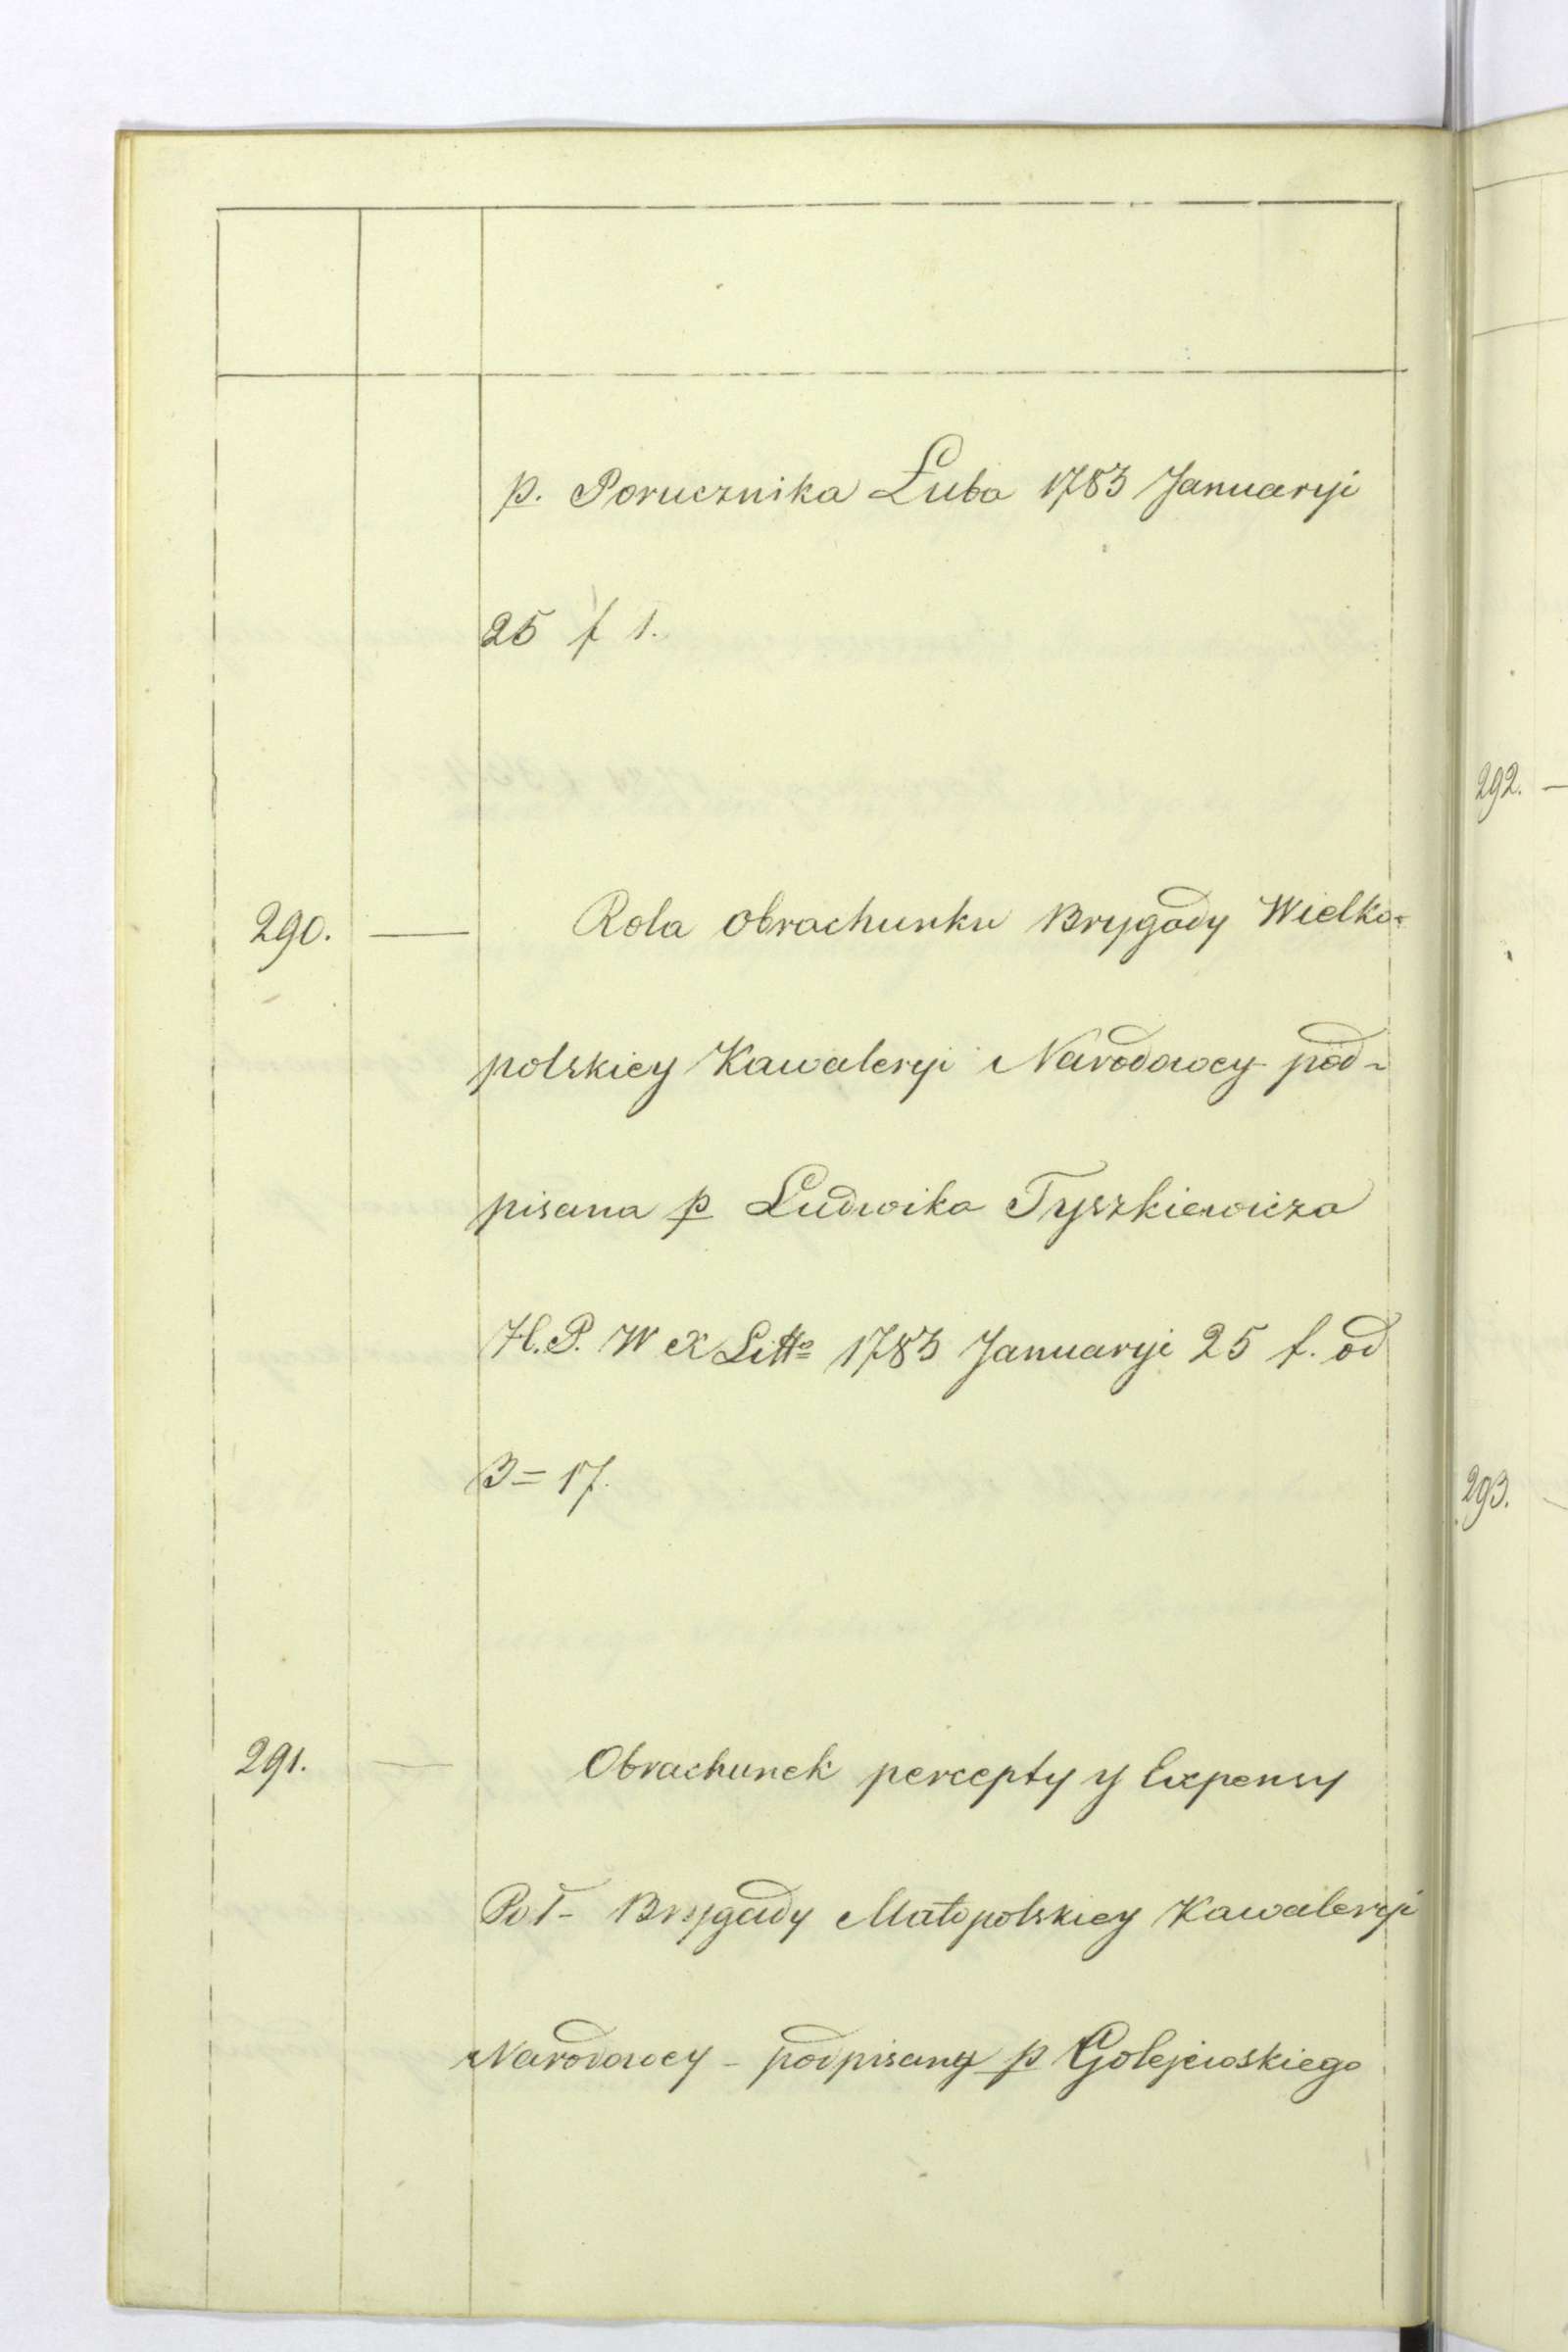 p. Porucznika Łuba 1783 Januaryi
25 f 1.
290. — Rola obrachunku Brygady Wielko-
polskiey Kawaleryi Narodowey pod-
pisana p Ludwika Tyszkiewicza
H. P. W X Litto 1783 Januaryi 25 f. od
3 = 17.
291. — Obrachunek percepty y Expensy
Poł- Brygady Małopolskiey Kawaleryi
Narodowey - podpisany p Golejewskiego
292. —
293.